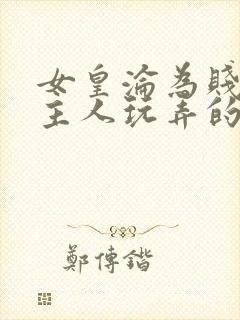 女皇淪為賤
主人玩弄的
鄭傳鍇